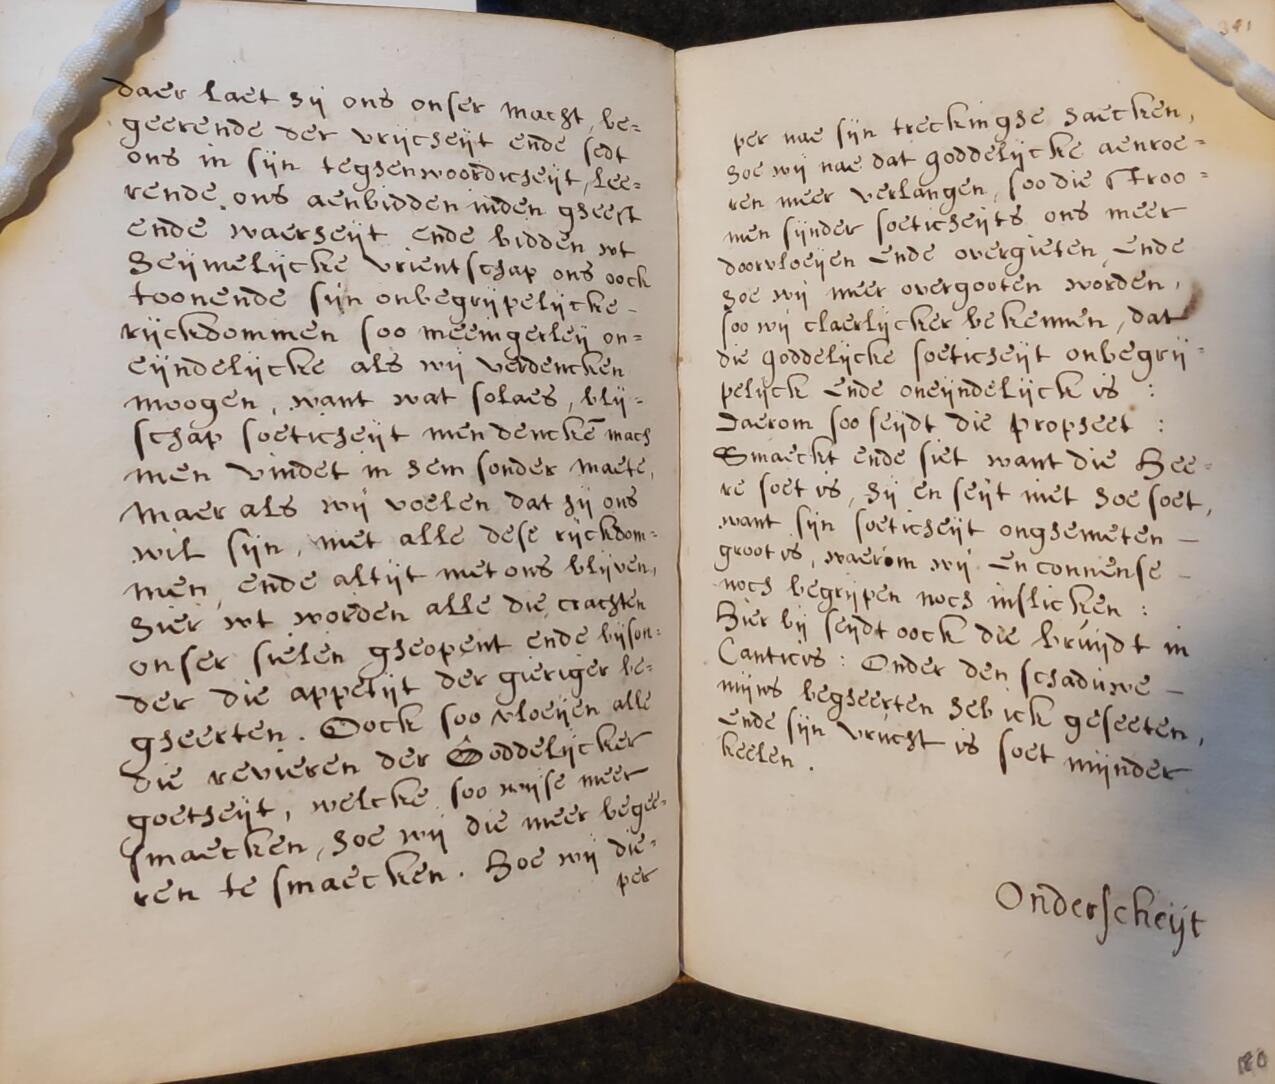 daer laet hij ons onser macht, be=
geerende der vrijheijt ende sedt
ons in sijn teghenwoordicheijt, lee=
rende ons aenbidden inden gheest
ende waerheijt ende bidden wt
heijmelijcke vrientschap ons oock
toonende sijn onbegrijpelijcke -
rijckdommen soo meenigerleij on=
eijndelijcke als wij verdencken
moogen, want wat solaes, blij-
schap soeticheijt men denckē mach
men vindet in hem sonder maete,
maer als wij voelen dat hij ons
wil sijn, met alle dese rijckdom=
men, ende altijt met ons blijven,
hier wt worden alle die crachten
onser sielen gheopent ende bijson=
der die appetijt der gieriger be=
gheerten. Oock soo vloeijen alle
die revieren der Goddelijcker
goetheijt, welcke soo wijse meer
smaecken, hoe wij die meer begee=
ren te smaecken. Hoe wij die=
per
341
per nae sijn treckinghe haecken,
hoe wij nae dat goddelijcke aenroe=
ren meer verlangen, soo die stroo=
men sijnder soeticheijts ons meer
doorvloeijen ende overgieten, ende
hoe wij meer overgooten worden,
soo wij claerlijcker bekennen, dat
die goddelijcke soeticheijt onbegrij=
pelijck ende oneijndelijck is :
Daerom soo seijdt die propheet :
Smaeckt ende siet want die Hee=
re soet is, hij en seijt niet hoe soet,
want sijn soeticheijt onghemeten -
groot is, waerom wij en connense -
noch begrijpen noch inslicken :
Hier bij seijdt oock die bruijdt in
Canticis : Onder den schaduwe -
mijns begheerten heb ick geseeten,
ende sijn vrucht is soet mijnder
keelen.
Onderscheijt
180